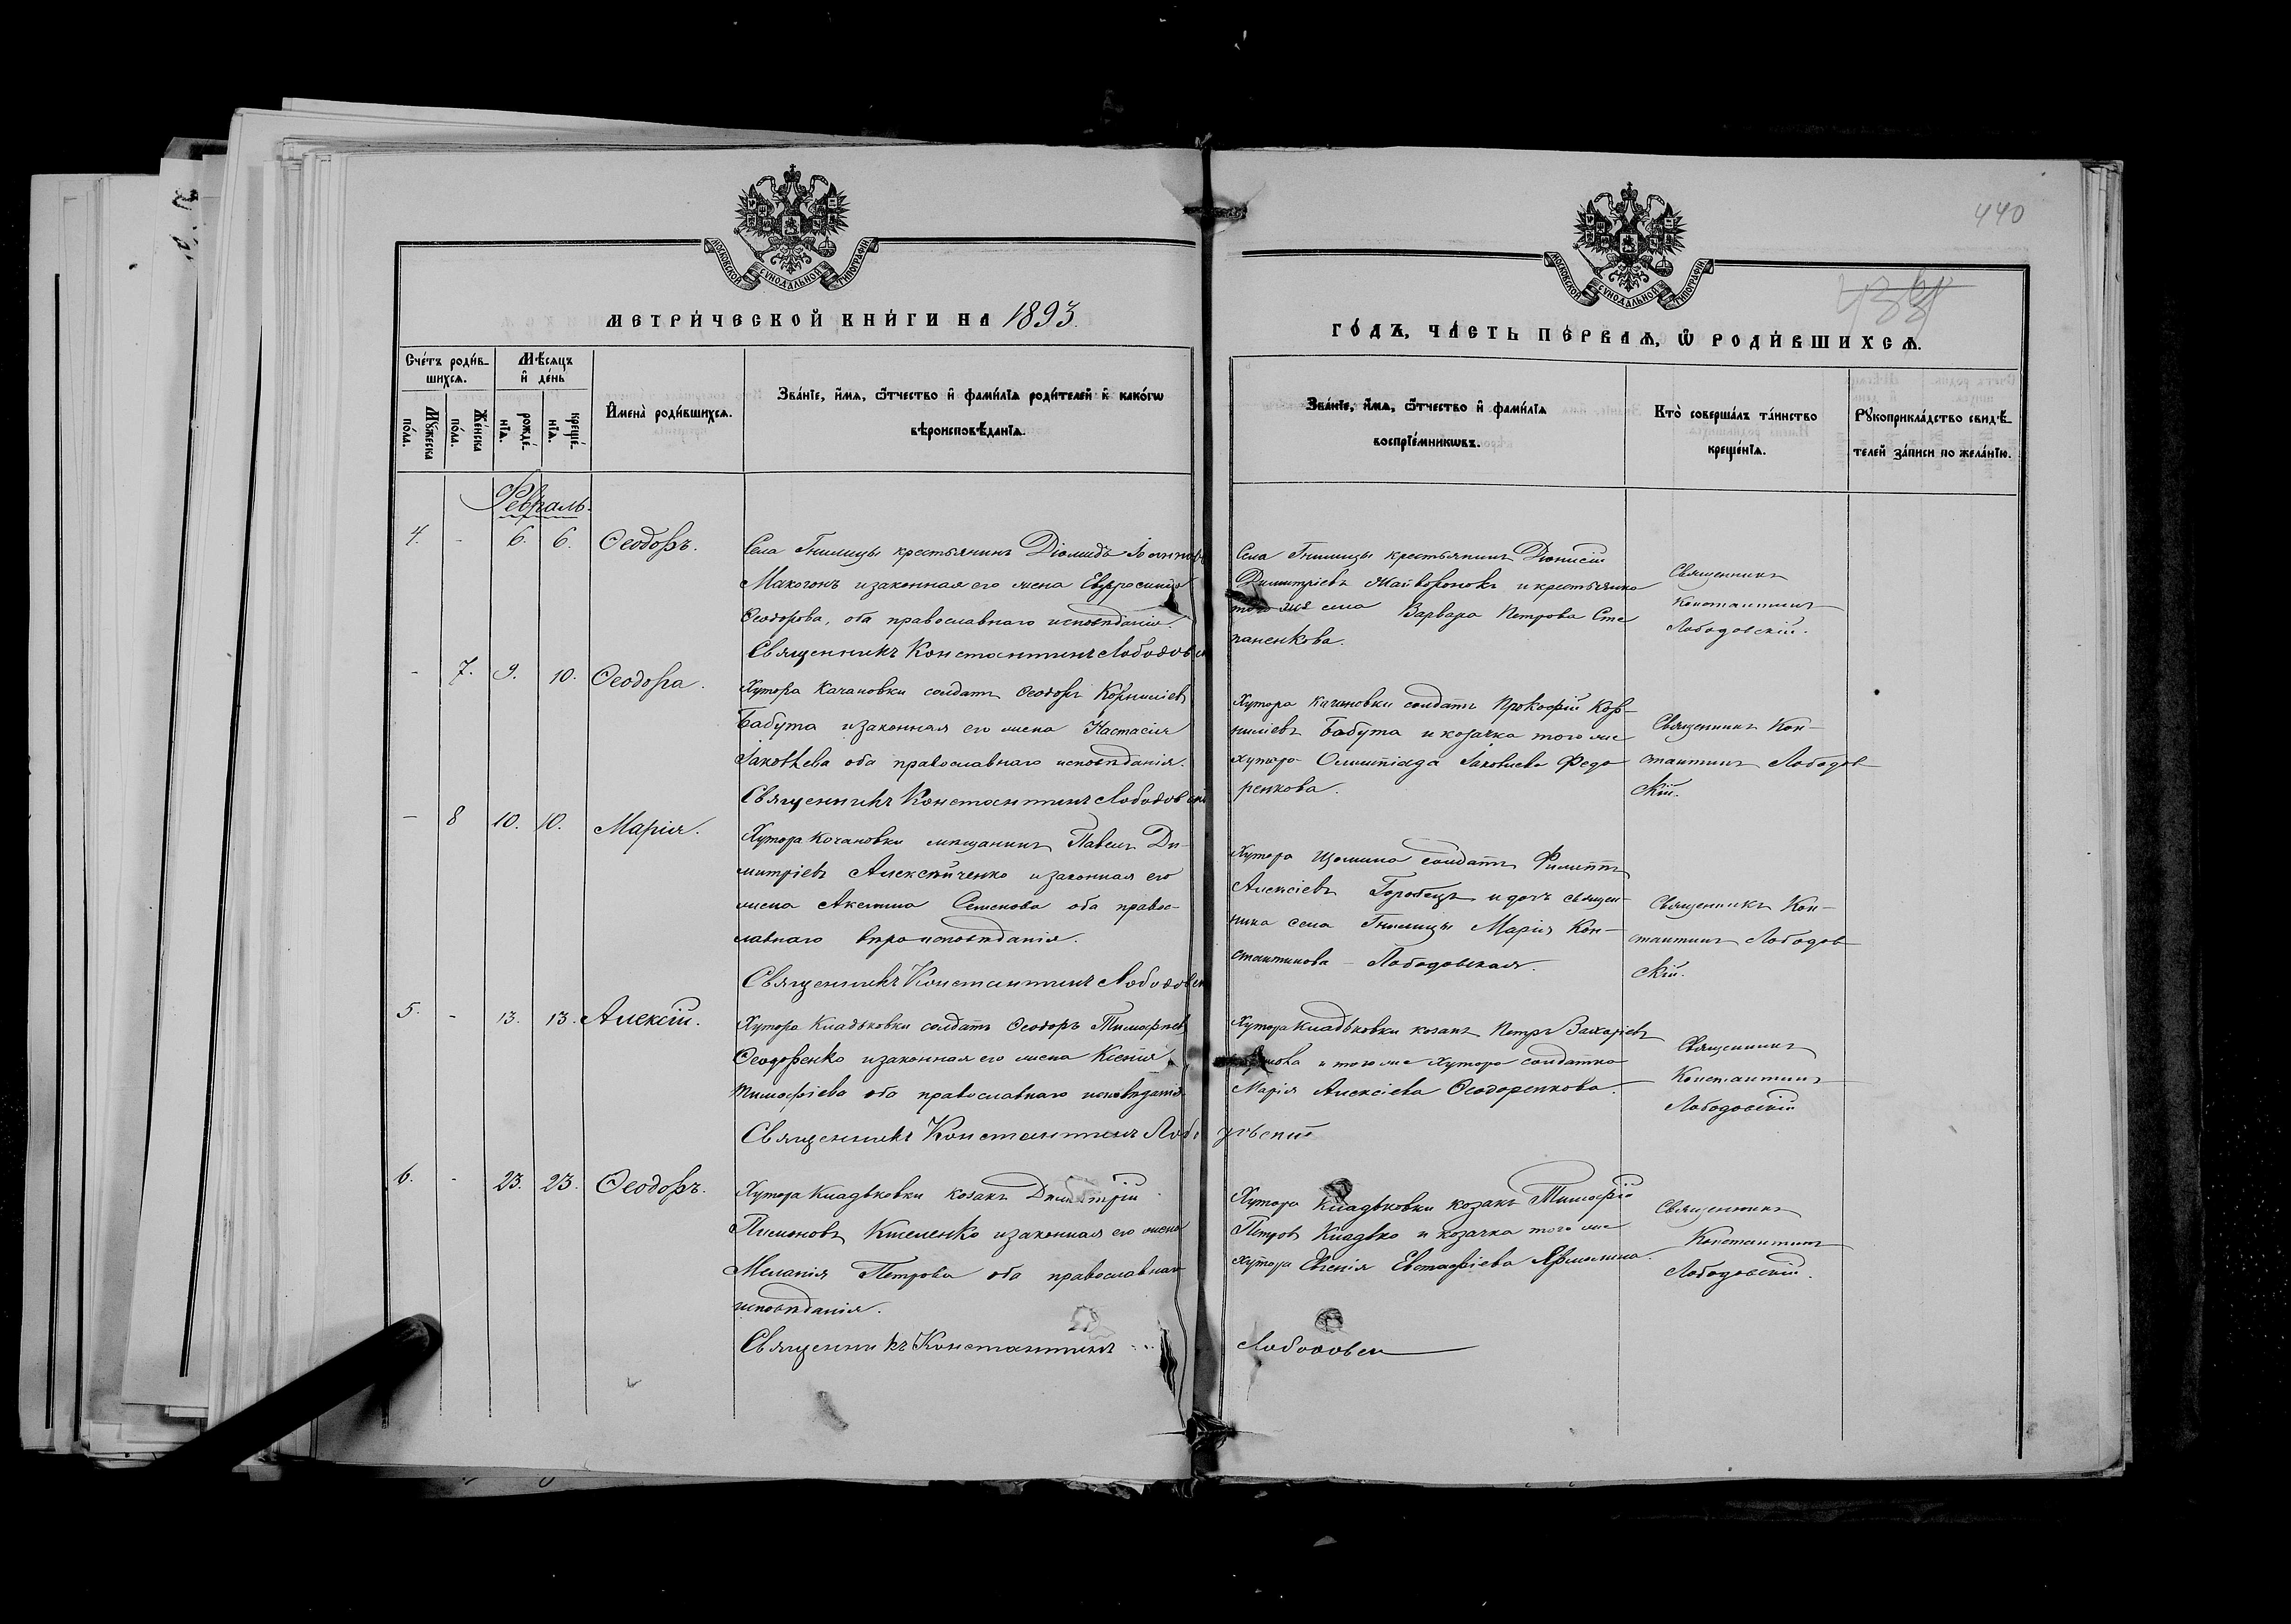 МОСКОВСКОЙ СѴНОДАЛЬНОЙ ТИПОГРАФІИ
МЕТРИ́ЧЕСКОЙ КНИ́ГИ НА 1893.
Сче́тъ роди́в-
шихсѧ.
Мѣ́сѧцъ
и҆ де́нь
Мꙋ́жеска
по́ла.
Же́нска
по́ла.
рожде́-
нїѧ.
креще́-
нїѧ.
И҆мена̀ роди́вшихсѧ.
Зва́нїе, и҆́мѧ, ѻ҆́тчество и҆ фами́лїѧ роди́телей и҆ како́гѡ
вѣроисповѣ́данїѧ.
Февраль.
4. - 6. 6. Ѳеодоръ.
Села Гнилицы крестьянинъ Діомидъ Іоанновъ
Макогонъ и законная его жена Евфросинія
Ѳеодорова, оба православнаго исповѣданія.
Священникъ Константинъ Лободовск
- 7. 9. 10. Ѳеодора.
Хутора Качановки солдатъ Ѳеодоръ Корниліевъ
Бабута и законная его жена Настасія
Іаковлева оба православнаго исповѣданія.
Священникъ Константинъ Лободовскій
- 8 10. 10. Марія.
Хутора Качановки мѣщанинъ Павелъ Ди-
митріевъ Алексѣйченко и законная его
жена Акилина Семенова оба правос-
лавнаго вѣроисповѣданія.
Священникъ Константинъ Лободовск
5. - 13. 13. Алексій.
Хутора Кладьковки солдатъ Ѳеодоръ Тимофіев
Ѳеодоренко и законная его жена Ксенія
Тимофіева оба православнаго исповѣданія.
Священникъ Константинъ Лобо
6. - 23. 23. Ѳеодоръ.
Хутора Кладьковки козакъ Димитрій
Пименовъ и законная его жена
Меланія Петрова оба православнаго
исповѣданія.
Священникъ Константинъ
440
МОСКОВСКОЙ СѴНОДАЛЬНОЙ ТИПОГРАФІИ
ГО́ДЪ, ЧА́СТЬ ПЕ́РВАѦ, Ѡ҆ РОДИ́ВШИХСѦ.
Зва́нїе, и҆́мѧ, ѻ҆́тчество и҆ фами́лїѧ
воспрїе́мникѡвъ.
Кто̀ соверша́лъ та́инство
креще́нїѧ.
Рꙋкоприкла́дство свидѣ́-
телей за́писи по жела́нїю.
Села Гнилицы крестьянинъ Діонисій
Димитріевъ Майворонокъ и крестьянка
того же села Варвара Петрова Сте
паненкова.
Священникъ
Константинъ
Лободовскій.
Хутора Качановки солдатъ Прокофій Кор-
ниліевъ Бабута и козачка того же
хутора Олимпіада Іаковлева Федо
ренкова.
Священникъ Кон-
стантинъ Лободов
скій.
Хутора солдатъ Филиппъ
Алексіевъ Горобецъ и дочь священ-
ника села Гнилицы Марія Кон-
стантинова - Лободовская.
Священникъ Кон-
стантинъ Лободов
скій.
Хутора Кладьковки козакъ Петръ Захаріевъ
и того же хутора солдатка
Марія Алексіева Ѳеодоренкова.
Священникъ
Константинъ
Лободовскій
Хутора Кладьковки козакъ Тимофій
Петровъ Кладько и козачка того же
хутора Евгенія Евстафіева
Священникъ
Константинъ
Лободовскій.
Лободовск